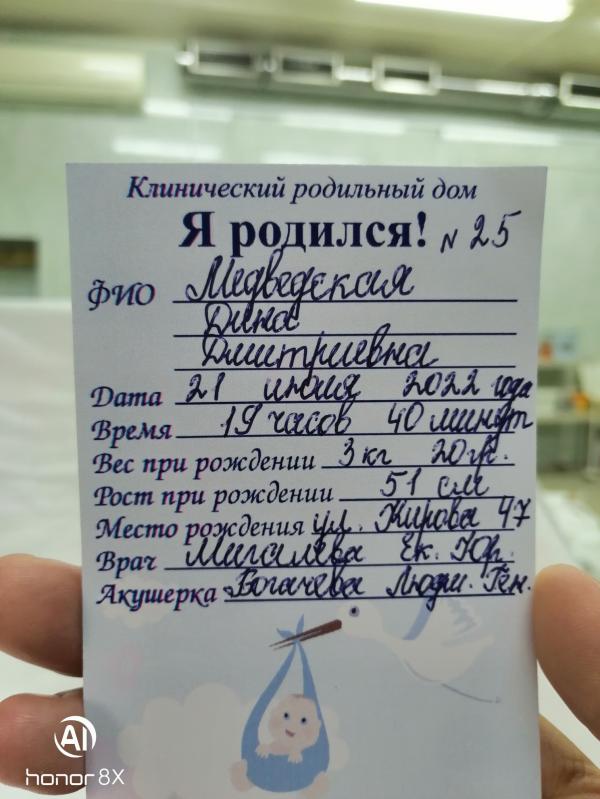 Клинический родильный дом
Я родился! N 25
ФИО Медведская
Дина
Дмитриевна
Дата 21 июня 2022 года
Время 19 часов 40 минут
Вес при рождении 3 кг 20 гр.
Рост при рождении 51 см
Место рождения ул. Кирова 47
Врач Мигалева Ек. Юр.
Акушерка Богачева Людм. Ген.
AI
honor 8X